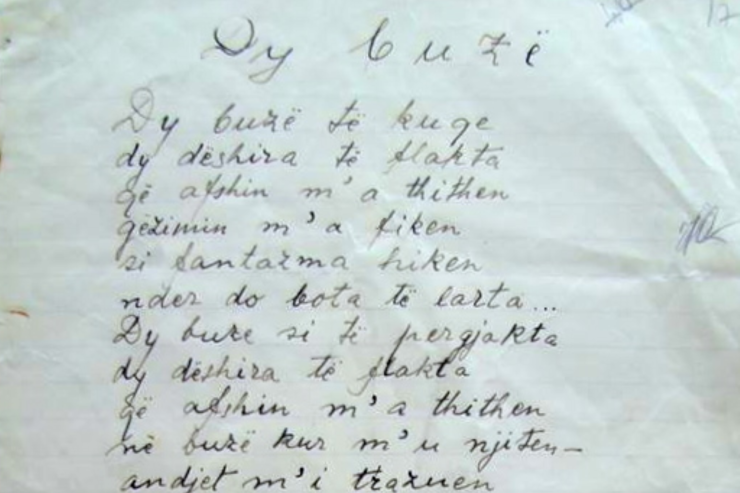 Dy buzë
Dy buzë të kuqe
dy dëshira të flakta
që afshin m'a thithen
gëzimin m'a fiken
si fantazma hiken
nder do bota të larta...
Dy buze si të pergjakta
dy dëshira të flakta
që afshin m'a thithen
në buzë kur m'u njiten-
andjet m'i trazuen